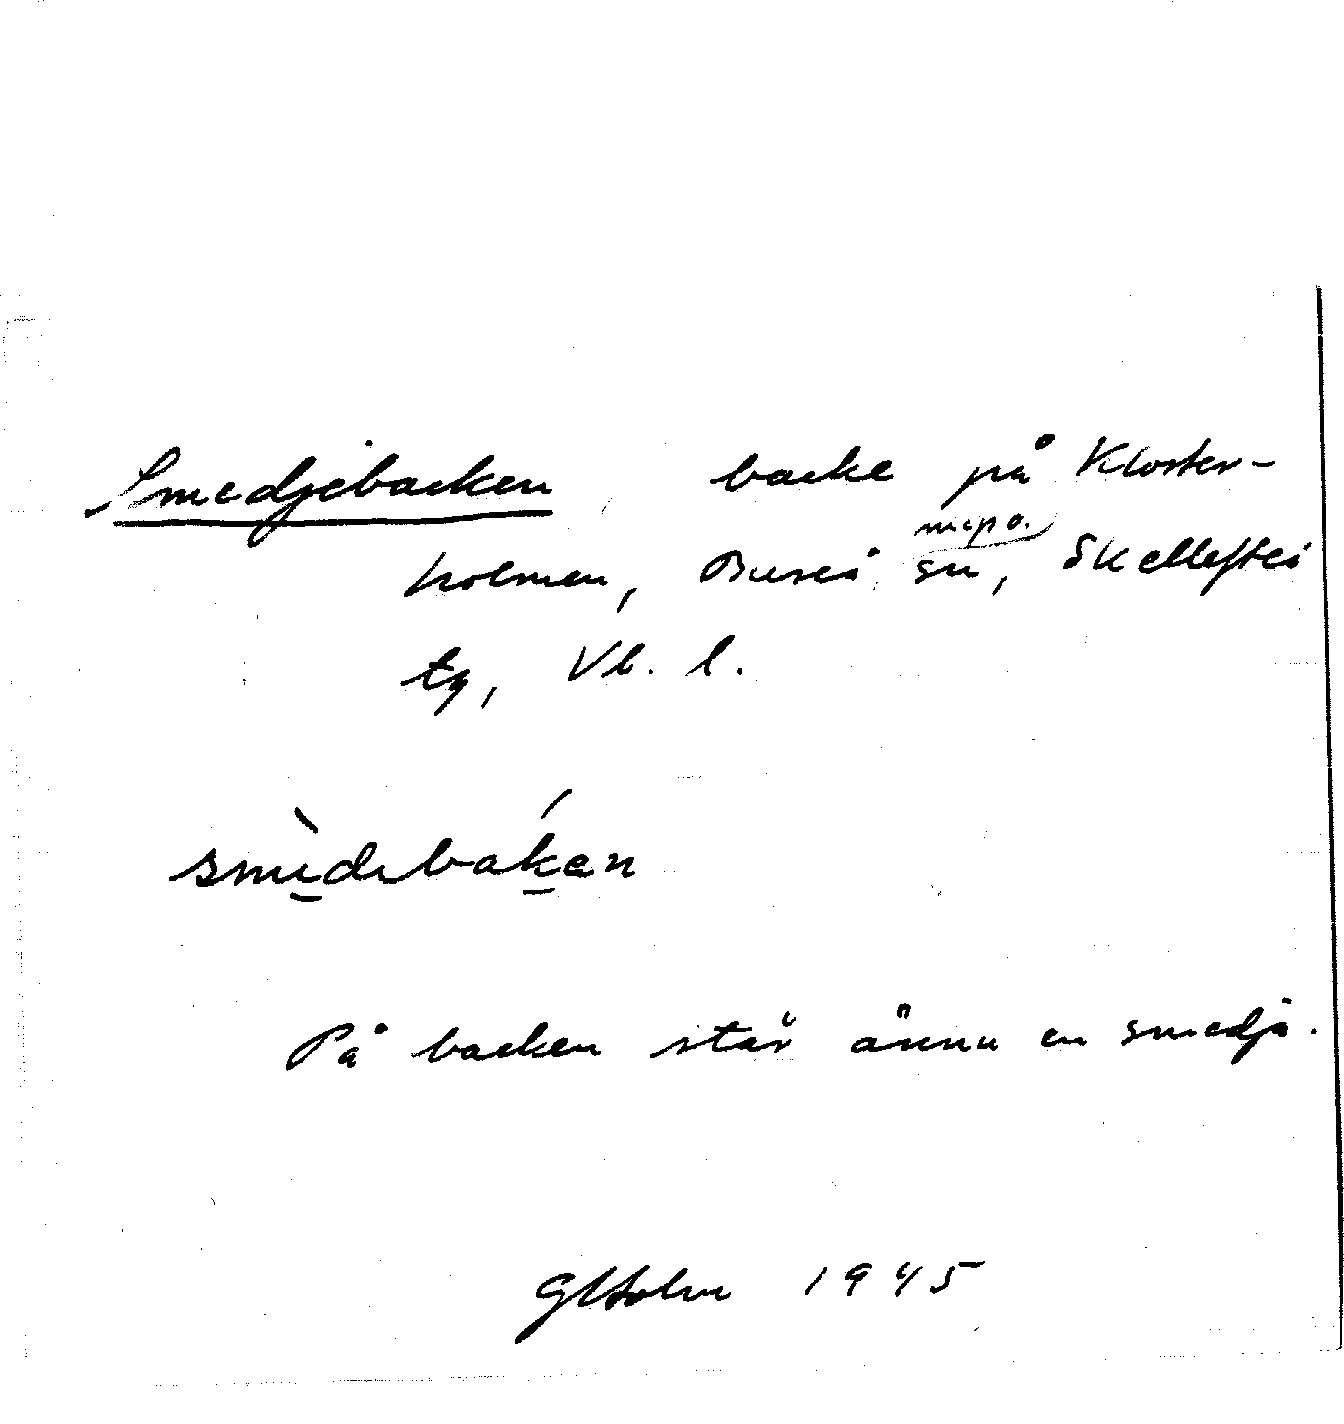 Smedjebacken backe på Kloster-
holmen, Bureå sn, Skellefteå
tg, Vb. l.
smèdebáken
På backen står ännu en smedja.
GHolm 1945